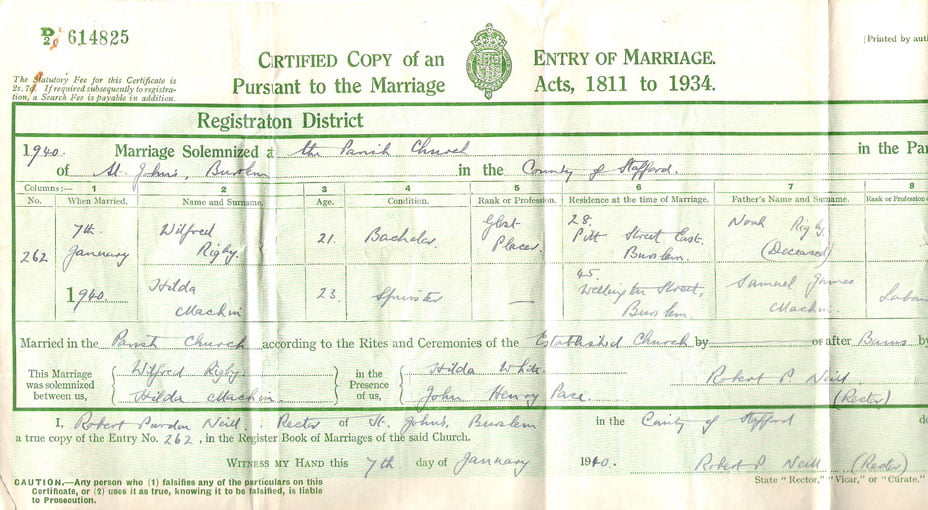 P 2/9 614825
[Printed by auth
CERTIFIED COPY of an ENTRY OF MARRIAGE.
Pursuant to the Marriage Acts, 1811 to 1934.
The Statutory Fee for this Certificate is
2s. 7d. If required subsequently to registra-
tion, a Search Fee is payable in addition.
Registraton District
1940. Marriage Solemnized at the Parish Church in the Par
of St. John's, Burslem in the County of Stafford.
Columns:— 1 2 3 4 5 6 7 8
No. When Married. Name and Surname. Age. Condition. Rank or Profession. Residence at the time of Marriage. Father's Name and Surname. Rank or Profession
262 7th January 1940. Wilfred Rigby. 21. Bachelor Glost Placer. 28. Pitt Street East. Burslem. Noah Rigby (Deceased)
Hilda Machin 23. Spinster — 45. Wellington Street, Burslem. Samuel James Machin. Labou
Married in the Parish Church according to the Rites and Ceremonies of the Established Church by or after Banns by
This Marriage was solemnized between us, Wilfred Rigby. Hilda Machin. in the Presence of us, Hilda White. John Henry Pace. Robert P. Neill (Rector)
I, Robert Purdon Neill, Rector of St. John's, Burslem in the County of Stafford de
a true copy of the Entry No. 262, in the Register Book of Marriages of the said Church.
WITNESS MY HAND this 7th day of January 1940. Robert P. Neill (Rector)
State "Rector," "Vicar," or "Curate."
CAUTION.—Any person who (1) falsifies any of the particulars on this
Certificate, or (2) uses it as true, knowing it to be falsified, is liable
to Prosecution.